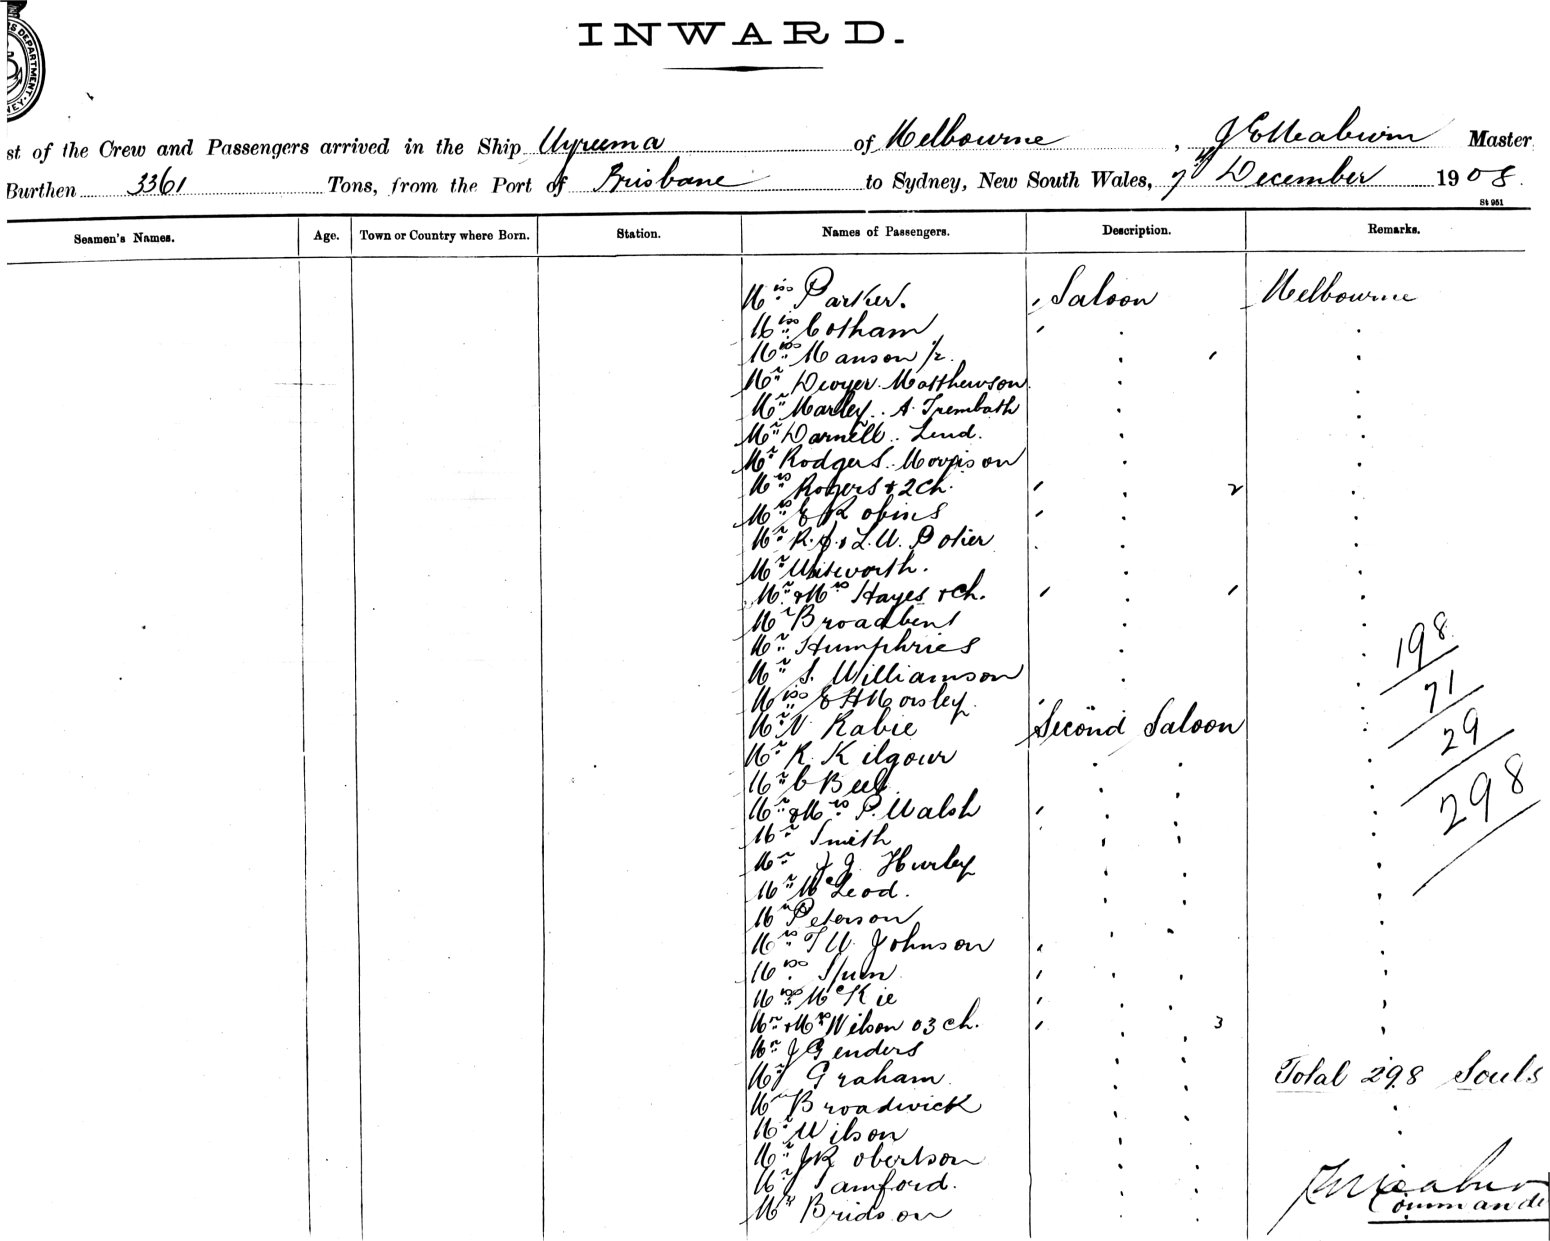 INWARD.
st of the Crew and Passengers arrived in the Ship Wyreema of Melbourne, Master
Burthen 3361 Tons, from the Port of Brisbane to Sydney, New South Wales, 7th December 1908.
St 951
Seamen's Names. Age. Town or Country where Born. Station. Names of Passengers. Description. Remarks.
Miss Parker. Saloon Melbourne
Miss Cotham
Miss Manson
Mr Dwyer. Matthewson
Mr Marley. A. Trembath
Mr Darnell. Lind.
Mr Rodgers. Morrison
Mrs Rogers & 2 Ch. 2
Mrs E Robins
Mr R. J. & L. W. Potier
Mr Whitworth.
Mr & Mrs Hayes & Ch.
Mr Broadbent
Mr Humphries
198
Mr S. Williamson
71
Miss E H Morsley
Mr N Rabie Second Saloon
29
Mr R. Kilgour
Mr C Bell
298
Mr & Mrs P. Walsh
Mr Smith
Mr J J Hurley
Mr McLeod.
Mr Peterson
Mrs T W Johnson
Miss
Miss McKie
Mr & Mrs Wilson & 3 Ch. 3
Mr J Genders
Mr Graham Total 298 Souls
Mr Broadwick
Mr Wilson
Mr J Robertson
Mr
Commande
Mr Bridson